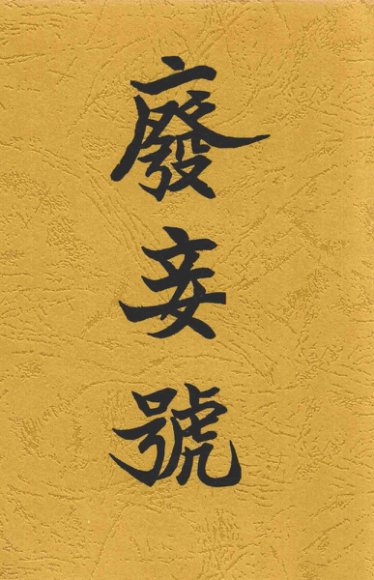 廢妄號